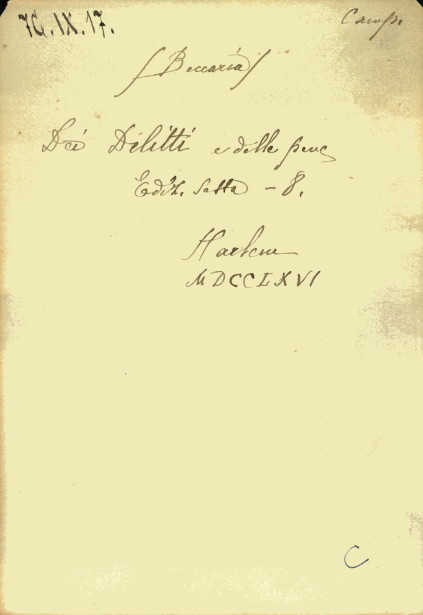 7G.IX.17.
Camp.
(Beccaria)
Dei Delitti e delle pene
Ediz. Sesta - 8.
Harlem
MDCCLXVI
C